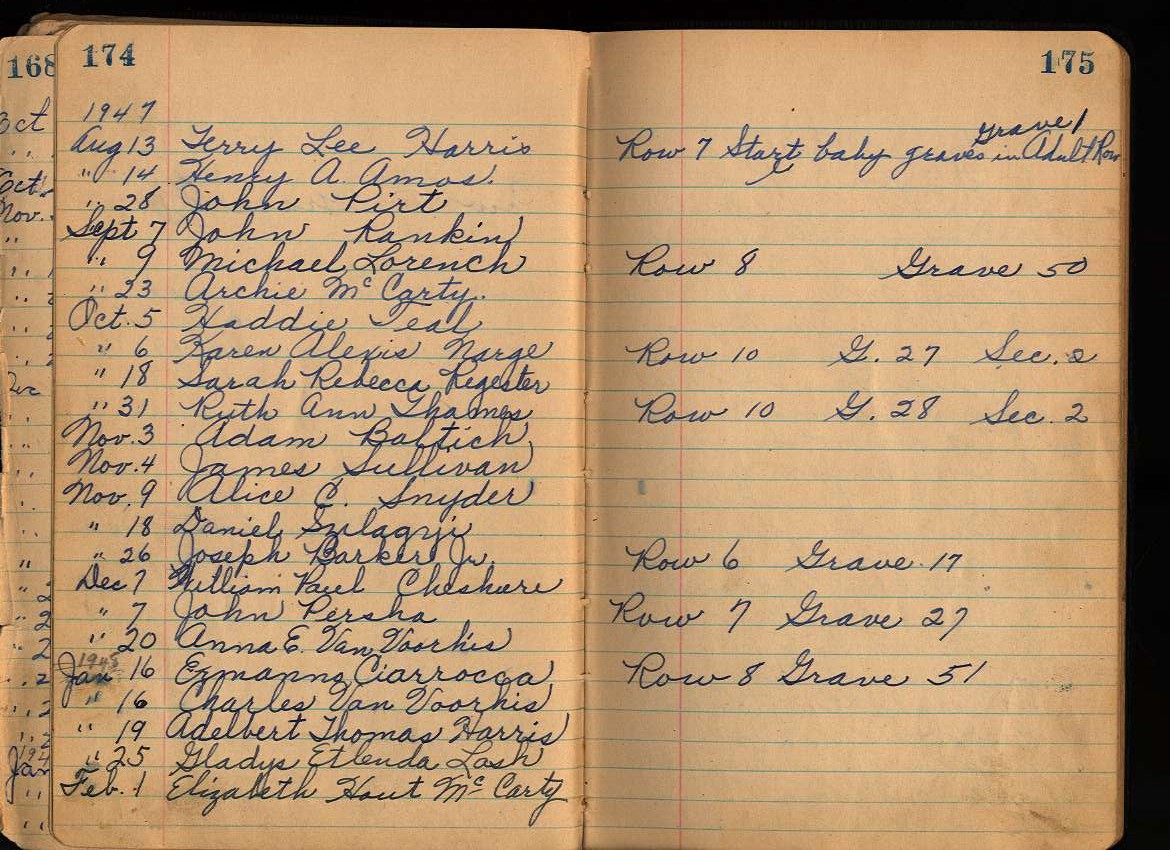 168
174
175
1947
Grave 1
Aug 13 Terry Lee Harris Row 7 Start baby graves in Adult Row
" 14 Henry A. Amos.
" 28 John Pirt
Sept 7 John Rankin
" 9 Michael Lorench Row 8 Grave 50
" 23 Archie Mc Carty.
Oct. 5 Haddie Teal
" 6 Karen Alexis Narge Row 10 G. 27 Sec. 2
" 18 Sarah Rebecca Regester
" 31 Ruth Ann Thames Row 10 G. 28 Sec. 2
Nov. 3 Adam Babtich
Nov. 4 James Sullivan
Nov. 9 Alice C. Snyder
" 18 Daniel Szilagyi
" 26 Joseph Barker Jr. Row 6 Grave 17
Dec 7 William Paul Cheshire
" 7 John Persha Row 7 Grave 27
" 20 Anna E. Van Voorhis
1948
Jan 16 Ermanno Ciarrocca Row 8 Grave 51
" 16 Charles Van Voorhis
" 19 Adelbert Thomas Harris
" 25 Gladys Etlenda Lash
Feb. 1 Elizabeth Hout Mc Carty